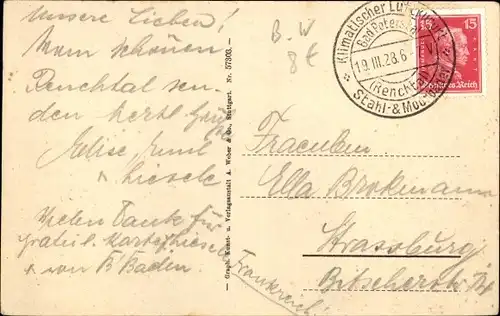 Unsere Lieben!
Vom schönen
Renchtal sen-
den herzl. Grüße
Elise, Emil
Vielen Dank für
von B'Baden.
Graph. Kunst- u. Verlagsanstalt A. Weber & Co., Stuttgart. Nr. 57303.
B.W
8€
Klimatischer Luftkurort
Bad Peterstal
19.III.28.6
(Renchtal)
Stahl- & Moorbäder
15 15
Deutsches Reich
Fräulein
Ella Brokmann
Strassburg
Bitscherstr.
Frankreich!